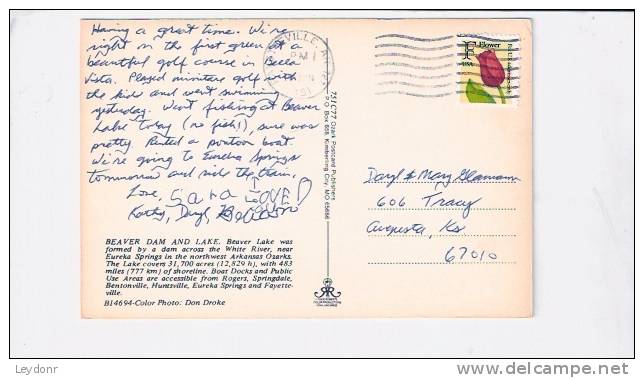 Having a great time. We're
right on the first green at a
beautiful golf course in Bella
Vista. Played miniture golf with
the kids and went swimming
yesterday. Went fishing at Beaver
Lake today (no fish!), sure was
pretty. Rented a pontoon boat.
We're going to Eureka Springs
tomorrow and ride the train.
Love, Sara I LOVE
Kathy, Daryl,
BEAVER DAM AND LAKE. Beaver Lake was
formed by a dam across the White River, near
Eureka Springs in the northwest Arkansas Ozarks.
The Lake covers 31,700 acres (12,829 h), with 483
miles (777 km) of shoreline. Boat Docks and Public
Use Areas are accessible from Rogers, Springdale,
Bentonville, Huntsville, Eureka Springs and Fayette-
ville.
B14694-Color Photo: Don Droke
751C77 Ozark Postcard Publishers
P O Box 668, Kimberling City, MO 65686
PM
F Flower
USA
Daryl & Mary
606 Tracy
Augusta, Ks.
67010
Leydonr
delcampe.net